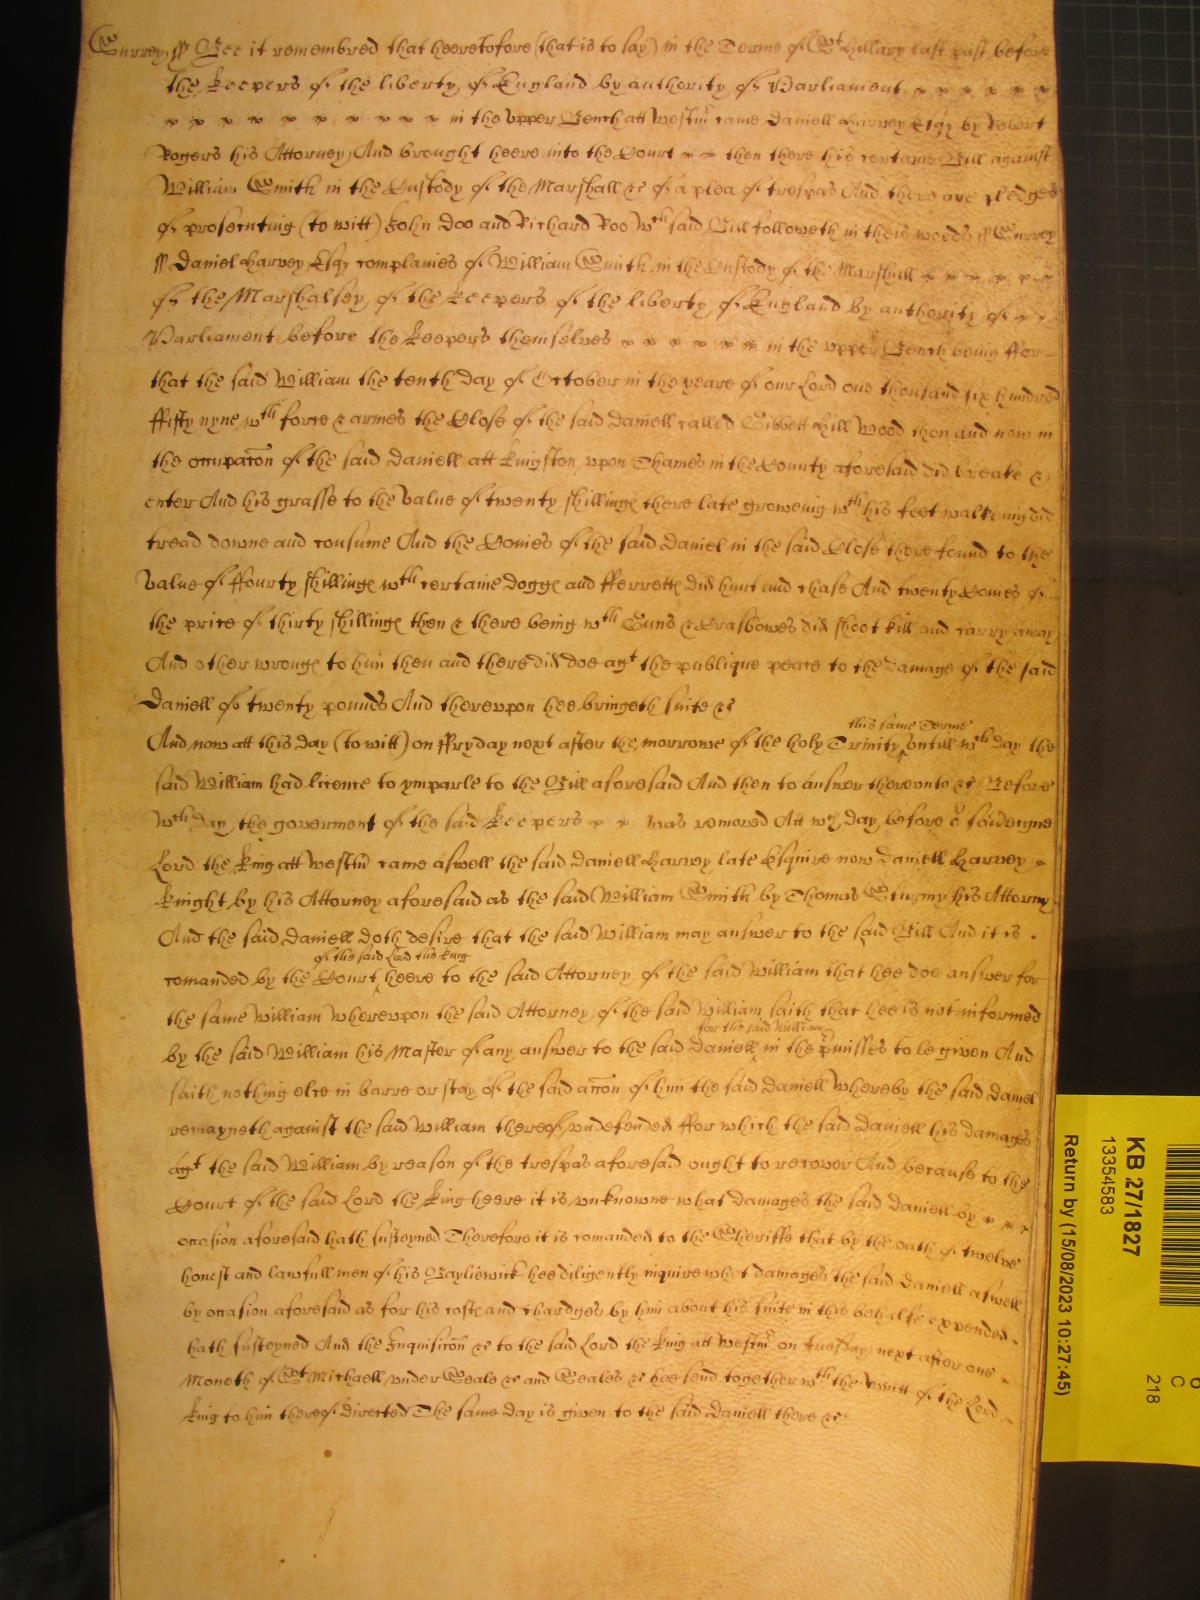 Surrey ss Bee it remembred that heeretofore (that is to say) in the Terme of St Hillary last past before
the Keepers of the liberty of England by authority of Parliament
in the upper Bench att Westmr came Daniell Harvey Esqr by Robert
Rogers his Attorney And brought heere into the Court then there his certaine Bill against
William Smith in the Custody of the Marshall &c of a plea of trespas And there are pledges
of prosecuting (to witt) John Doo and Richard Roo Wch said Bill followeth in theis words ss Surrey
ss Daniel Harvey Esqr complaines of William Smith in the Custody of the Marshall
of the Marshalsey of the Keepers of the liberty of England by authority of
Parliament before the Keepers themselves in the upper Bench being ffor
that the said William the tenth day of October in the yeare of our Lord one thousand six hundred
ffifty nyne wth force & armes the Close of the said Daniell called Gibbett Hill Wood then and now in
the occupacon of the said Daniell att Kingston upon Thames in the County aforesaid did breake &
enter And his grasse to the value of twenty shillings there late groweing wth his feet walkeing did
tread downe and consume And the Conies of the said Daniel in the said Close there found to the
value of ffourty shillings wth certaine dogges and fferretts did hunt and chase And twenty Conies of
the price of thirty shillings then & there being wth Guns & Crasbowes did shoot kill and carry away
And other wrongs to him then and there did doe agt the publique peace to the damage of the said
Daniell of twenty pounds And thereupon hee bringeth suite &c
this same Terme
And now att this day (to witt) on ffryday next after the morrowe of the holy Trinity untill wch day the
said William had licence to ymparle to the Bill aforesaid And then to answer thereunto &c Before
Wch day the goverment of the said Keepers was removed Att wch day before or soveigne
Lord the King att Westmr came aswell the said Daniell Harvey late Esquire now Daniell Harvey
Knight by his Attorney aforesaid as the said William Smith by Thomas Sturmy his Attorny
And the said Daniell doth desire that the said William may answer to the said Bill And it is
of the said Lord the King
comanded by the Court heere to the said Attorney of the said William that hee doe answer for
the same William Whereupon the said Attorney of the said William saith that hee is not informed
for the said William
by the said William his Master of any answer to the said Daniell in the pmisses to be given And
saith nothing else in barre or stay of the said accon of him the said Daniell Whereby the said Daniel
remayneth against the said William thereof undefended ffor which the said Daniell his damages
agt the said William by reason of the trespas aforesaid ought to recover And because to the
Court of the said Lord the King heere it is unknowne what damages the said Daniell by
occasion aforesaid hath susteyned Therefore it is comanded to the Sheriffe that by the oath of twelve
honest and lawfull men of his Bayliewick hee diligently inquire what damages the said Daniell aswell
by occasion aforesaid as for his costs and chardges by him about his suite in this behalfe expended
hath susteyned And the Inquisicon &c to the said Lord the King att Westmr on tuesday next after one
Moneth of St Michaell under Seale &c and Seales &c hee send together wth the Writt of the Lord
King to him thereof directed The same day is given to the said Daniell there &c
KB 27/1827
13354583
Return by (15/08/2023 10:27:45)
C
218